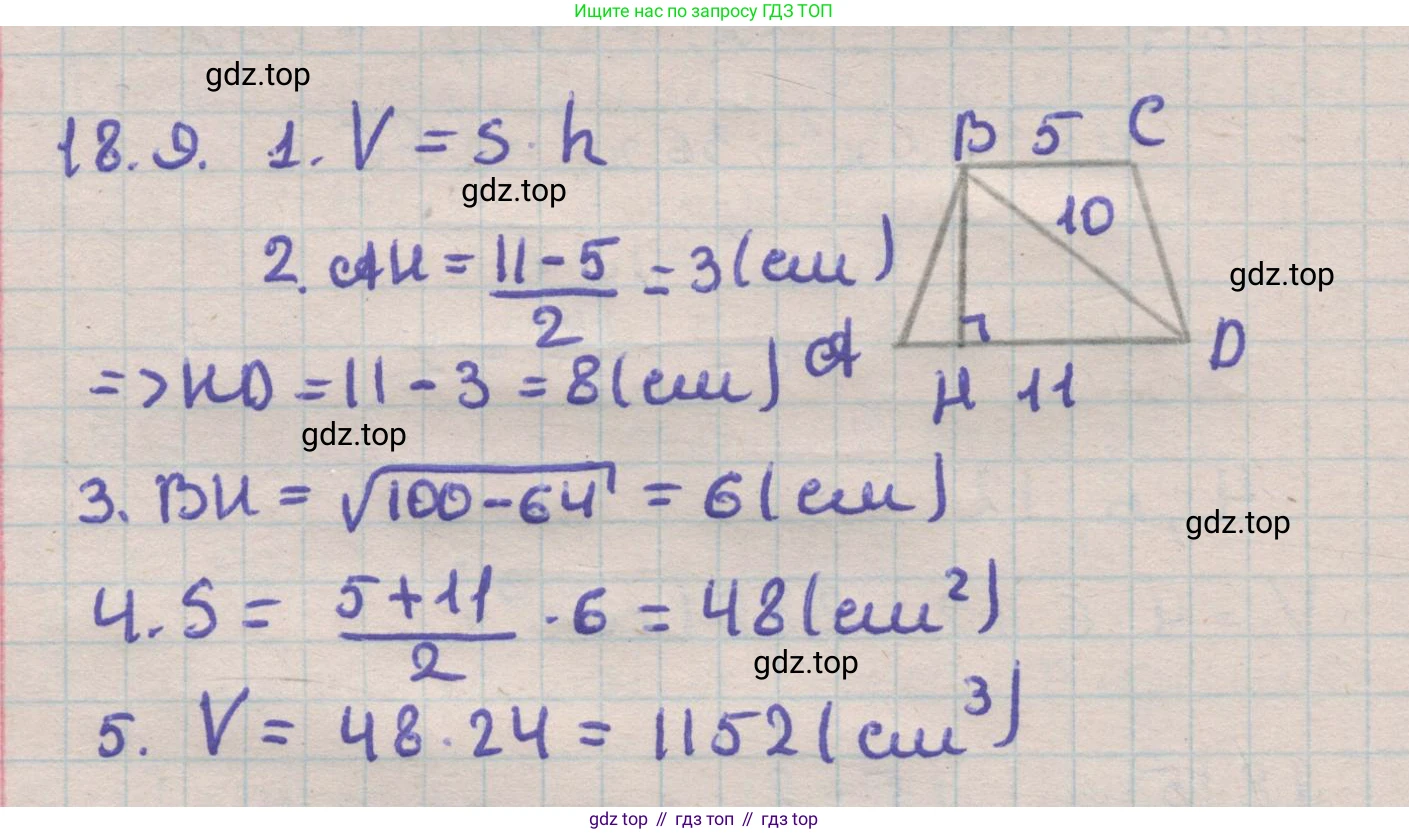 Ищите нас по запросу ГДЗ ТОП
gdz.top
18.9. 1. V = S · h
gdz.top
B 5 C
10
2. AH = \frac{11-5}{2} = 3 (см)
gdz.top
A H 11 D
=> HD = 11 - 3 = 8 (см)
gdz.top
3. BH = √100-64 = 6 (см)
gdz.top
4. S = \frac{5+11}{2} · 6 = 48 (см²)
gdz.top
5. V = 48 · 24 = 1152 (см³)
gdz top // гдз топ // гдз top